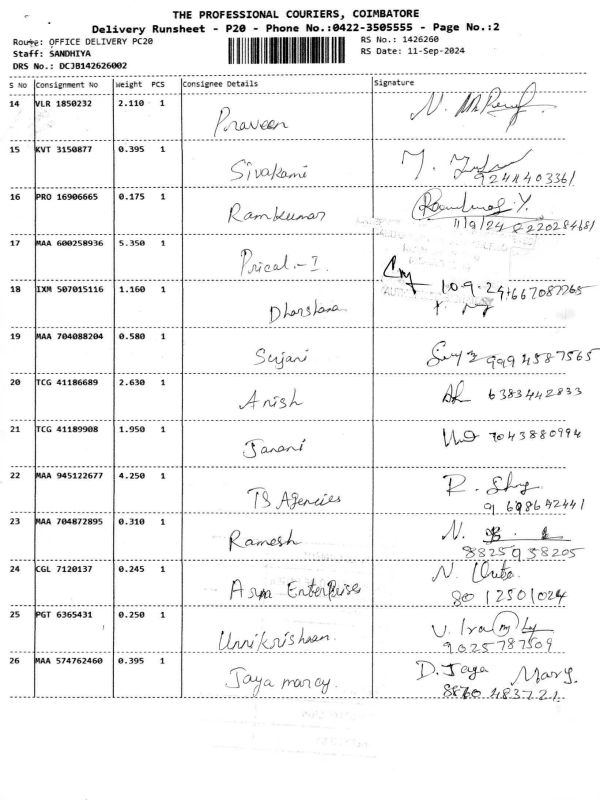 THE PROFESSIONAL COURIERS, COIMBATORE
Delivery Runsheet - P20 - Phone No.:0422-3505555 - Page No.:2
Route: OFFICE DELIVERY PC20
RS No.: 1426260
Staff: SANDHIYA
RS Date: 11-Sep-2024
DRS No.: DCJB142626002
S No Consignment No Weight PCS Consignee Details Signature
14 VLR 1850232 2.110 1
Praveen
15 KVT 3150877 0.395 1
Sivakami
16 PRO 16906665 0.175 1
Ramkumar
11/9/24
17 MAA 600258936 5.350 1
Prical.-I
10.9.24
18 IXM 507015116 1.160 1
Dharshana
19 MAA 704088204 0.580 1
Sujani 9994587565
20 TCG 41186689 2.630 1
Anish 6383442833
21 TCG 41189908 1.950 1
Janani 7043880994
22 MAA 945122677 4.250 1
TS Agencies R.
23 MAA 704872895 0.310 1
Ramesh N.
8825938205
24 CGL 7120137 0.245 1
Enterprises N.
8012501024
25 PGT 6365431 0.250 1
Unnikrishnan. U.
9025787509
26 MAA 574762460 0.395 1
Jaya marcy. D. Jaya Mary.
8860483721